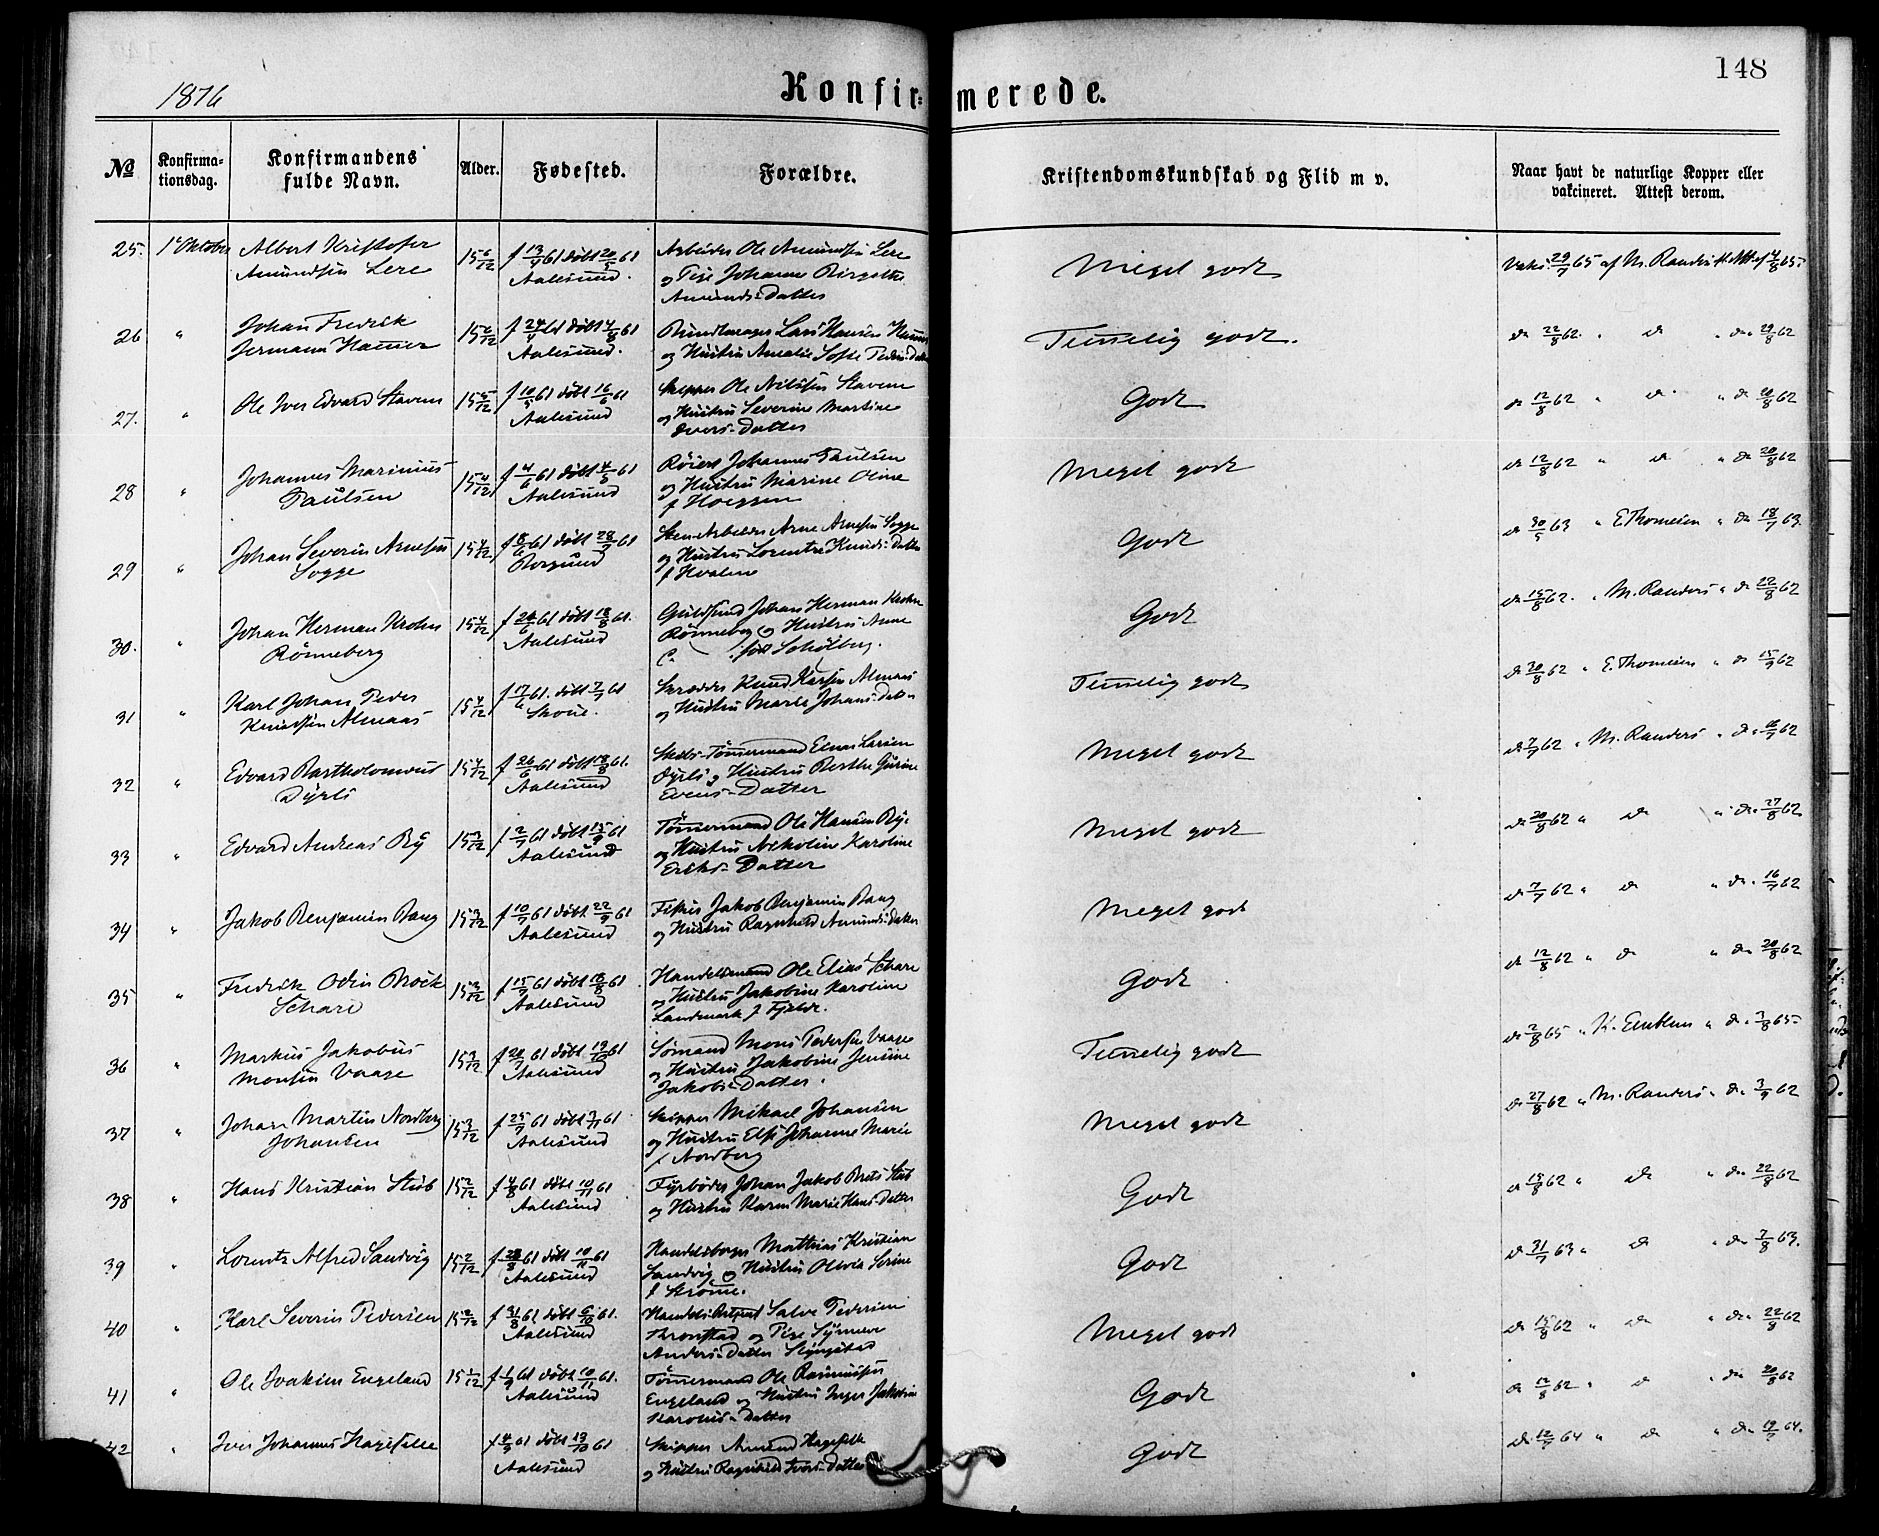 148
1876
Konfirmerede.
№
Konfirma-
tionsdag.
Konfirmandens
fulde Navn.
Alder.
Fødested.
Forældre.
Kristendomskundskab og Flid m v.
Naar havt de naturlige Kopper eller
vakcineret. Attest derom.
25. 1 Oktober Albert Kristofer 15 6/12 f 13/4 61 døbt 20/5 61 Arbeider Ole Amundsen Lere
Amundsen Lere Aalesund. og Pige Johanne Birgitte
Amunds-Datter
Meget godt Vakc. 29/7 65 af M. Randers Att. af 4/8 65.
26 " Johan Fredrik 15 6/12 f 24/4 61 døbt 4/8 61 Bundtmager Lars Hansen
Jermann Hammer Aalesund. og Hustru Amalie Sofie Peders-Datter
Temmelig godt. do 22/8 62 " do " do 29/8 62
27. " Ole Iver Edvard Stavem 15 5/12 f 10/5 61 døbt 16/6 61 Skipper Ole Nilssen Stavem
Aalesund og Hustru Severine Martine
Ivers-Datter
Godt do 12/8 62 " do " do 20/8 62
28 " Johannes Marinius 15 4/12 f 4/6 61 døbt 4/8 61 Røiert Johannes Paulsen
Paulsen Aalesund og Hustru Marine Oline
f Hoeggen
Meget godt do 12/8 62 " do " do 20/8 62
29 " Johan Severin Arnesen 15 4/12 f 8/6 61 døbt 28/7 61 Sten-Arbeider Arne Arnesen Sogge
Sogge Borgund og Hustru Lorentze Knuds-Datter
f Hvalen
Godt do 30/5 63 " E Thomesen " do 18/7 63.
30. " Johan Herman Krohn 15 4/12 f 24/6 61 døbt 18/8 61. Guldsmed Johan Herman Krohn
Rønneberg Aalesund Rønneberg og Hustru Anne
C. født Scholberg.
Godt do 15/8 62. " M. Randers " do 22/8 62
31 " Karl Johan Peder 15 4/12 f 17/6 61. døbt 7/7 61 Skrædder Knud Karsen Almaas
Knudsen Almaas Skoue. og Hustru Marte Johans-Datter
Temmelig godt do 30/8 62 " E. Thomesen " do 15/9 62
32 " Edvard Bartholomæus 15 4/12 f 26/6 61 døbt 18/8 61. Skibs-Tømmermand Einar Larsen
Dyrli Aalesund Dyrli og Hustru Berthe Gurine
Evens-Datter
Meget godt do 7/7 62 " M. Randers " do 16/7 62
33 " Edvard Andreas Ry 15 3/12 f 2/7 61 døbt 15/9 61 Tømmermand Ole Hansen Ry
Aalesund og Hustru Nikoline Karoline
Eriks-Datter
Meget godt do 20/8 62 " do " do 27/8 62.
34 " Jakob Benjamin Bang 15 3/12 f 10/7 61 døbt 22/9 61 Fisker Jakob Benjamin Bang
Aalesund og Hustru Ragnhild Amunds-Datter
Meget godt do 7/7 62 " do " do 16/7 62
35 " Fredrik Odin Brock 15 3/12 f 15/7 61 døbt 18/8 61 Handelsmand Ole Elias Schare
Schare Aalesund og Hustru Jakobine Karoline
Landmark f Fjelde.
Godt do 12/8 62 " do " do 20/8 62
36 " Markus Jakobus 15 3/12 f 20/7 61 døbt 19/10 61 Sømand Mons Pedersen Vaage
Monsen Vaage Aalesund og Hustru Jakobine Jensine
Jakobs-Datter.
Temmelig godt do 2/8 65 " K. Emblem " do 3/8 65
37 " Johan Martin Nordberg 15 3/12 f 25/7 61 døbt 3/11 61 Skipper Mikael Johansen
Johansen Aalesund og Hustru Elsi Johanne Marie
f. Nordberg
Meget godt do 27/8 62 " M. Randers " do 3/9 62
38 " Hans Kristian Stub 15 2/12 f 4/8 61 døbt 10/11 61 Fyrbøder Johan Jakob Brets Stub
Aalesund og Hustru Karen Marie Hans-Datter
Godt do 15/8 62 " do " do 22/8 62
39 " Lorents Alfred Sandvig 15 2/12 f 28/8 61 døbt 10/11 61 Handelsborger Matthias Kristian
Aalesund Sandvig og Hustru Olivia Serine
f Strømme.
Godt do 31/7 63 " do " do 7/8 63.
40 " Karl Severin Pedersen 15 2/12 f 31/8 61 døbt 6/10 61. Handels-Betjent Salve Pedersen
Aalesund Tronstad og Pige Synneve
Anders-Datter
Meget godt do 15/8 62 " do " do 22/8 62
41 " Ole Joakim Engeland 15 1/12 f 1/9 61 døbt 10/11 61. Tømmermand Ole Rasmussen
Aalesund Engeland og Hustru Inger Jakobine
Karolus-Datter
Godt do 12/8 62 " do " do 20/8 62
42 " Iver Johannes Hagefelle f 4/9 61 døbt 13/10 61 Skipper Amund Hagefelle
Aalesund og Hustru Ragnhild Ivers-Datter
Godt do 12/7 64 " do " do 19/7 64.